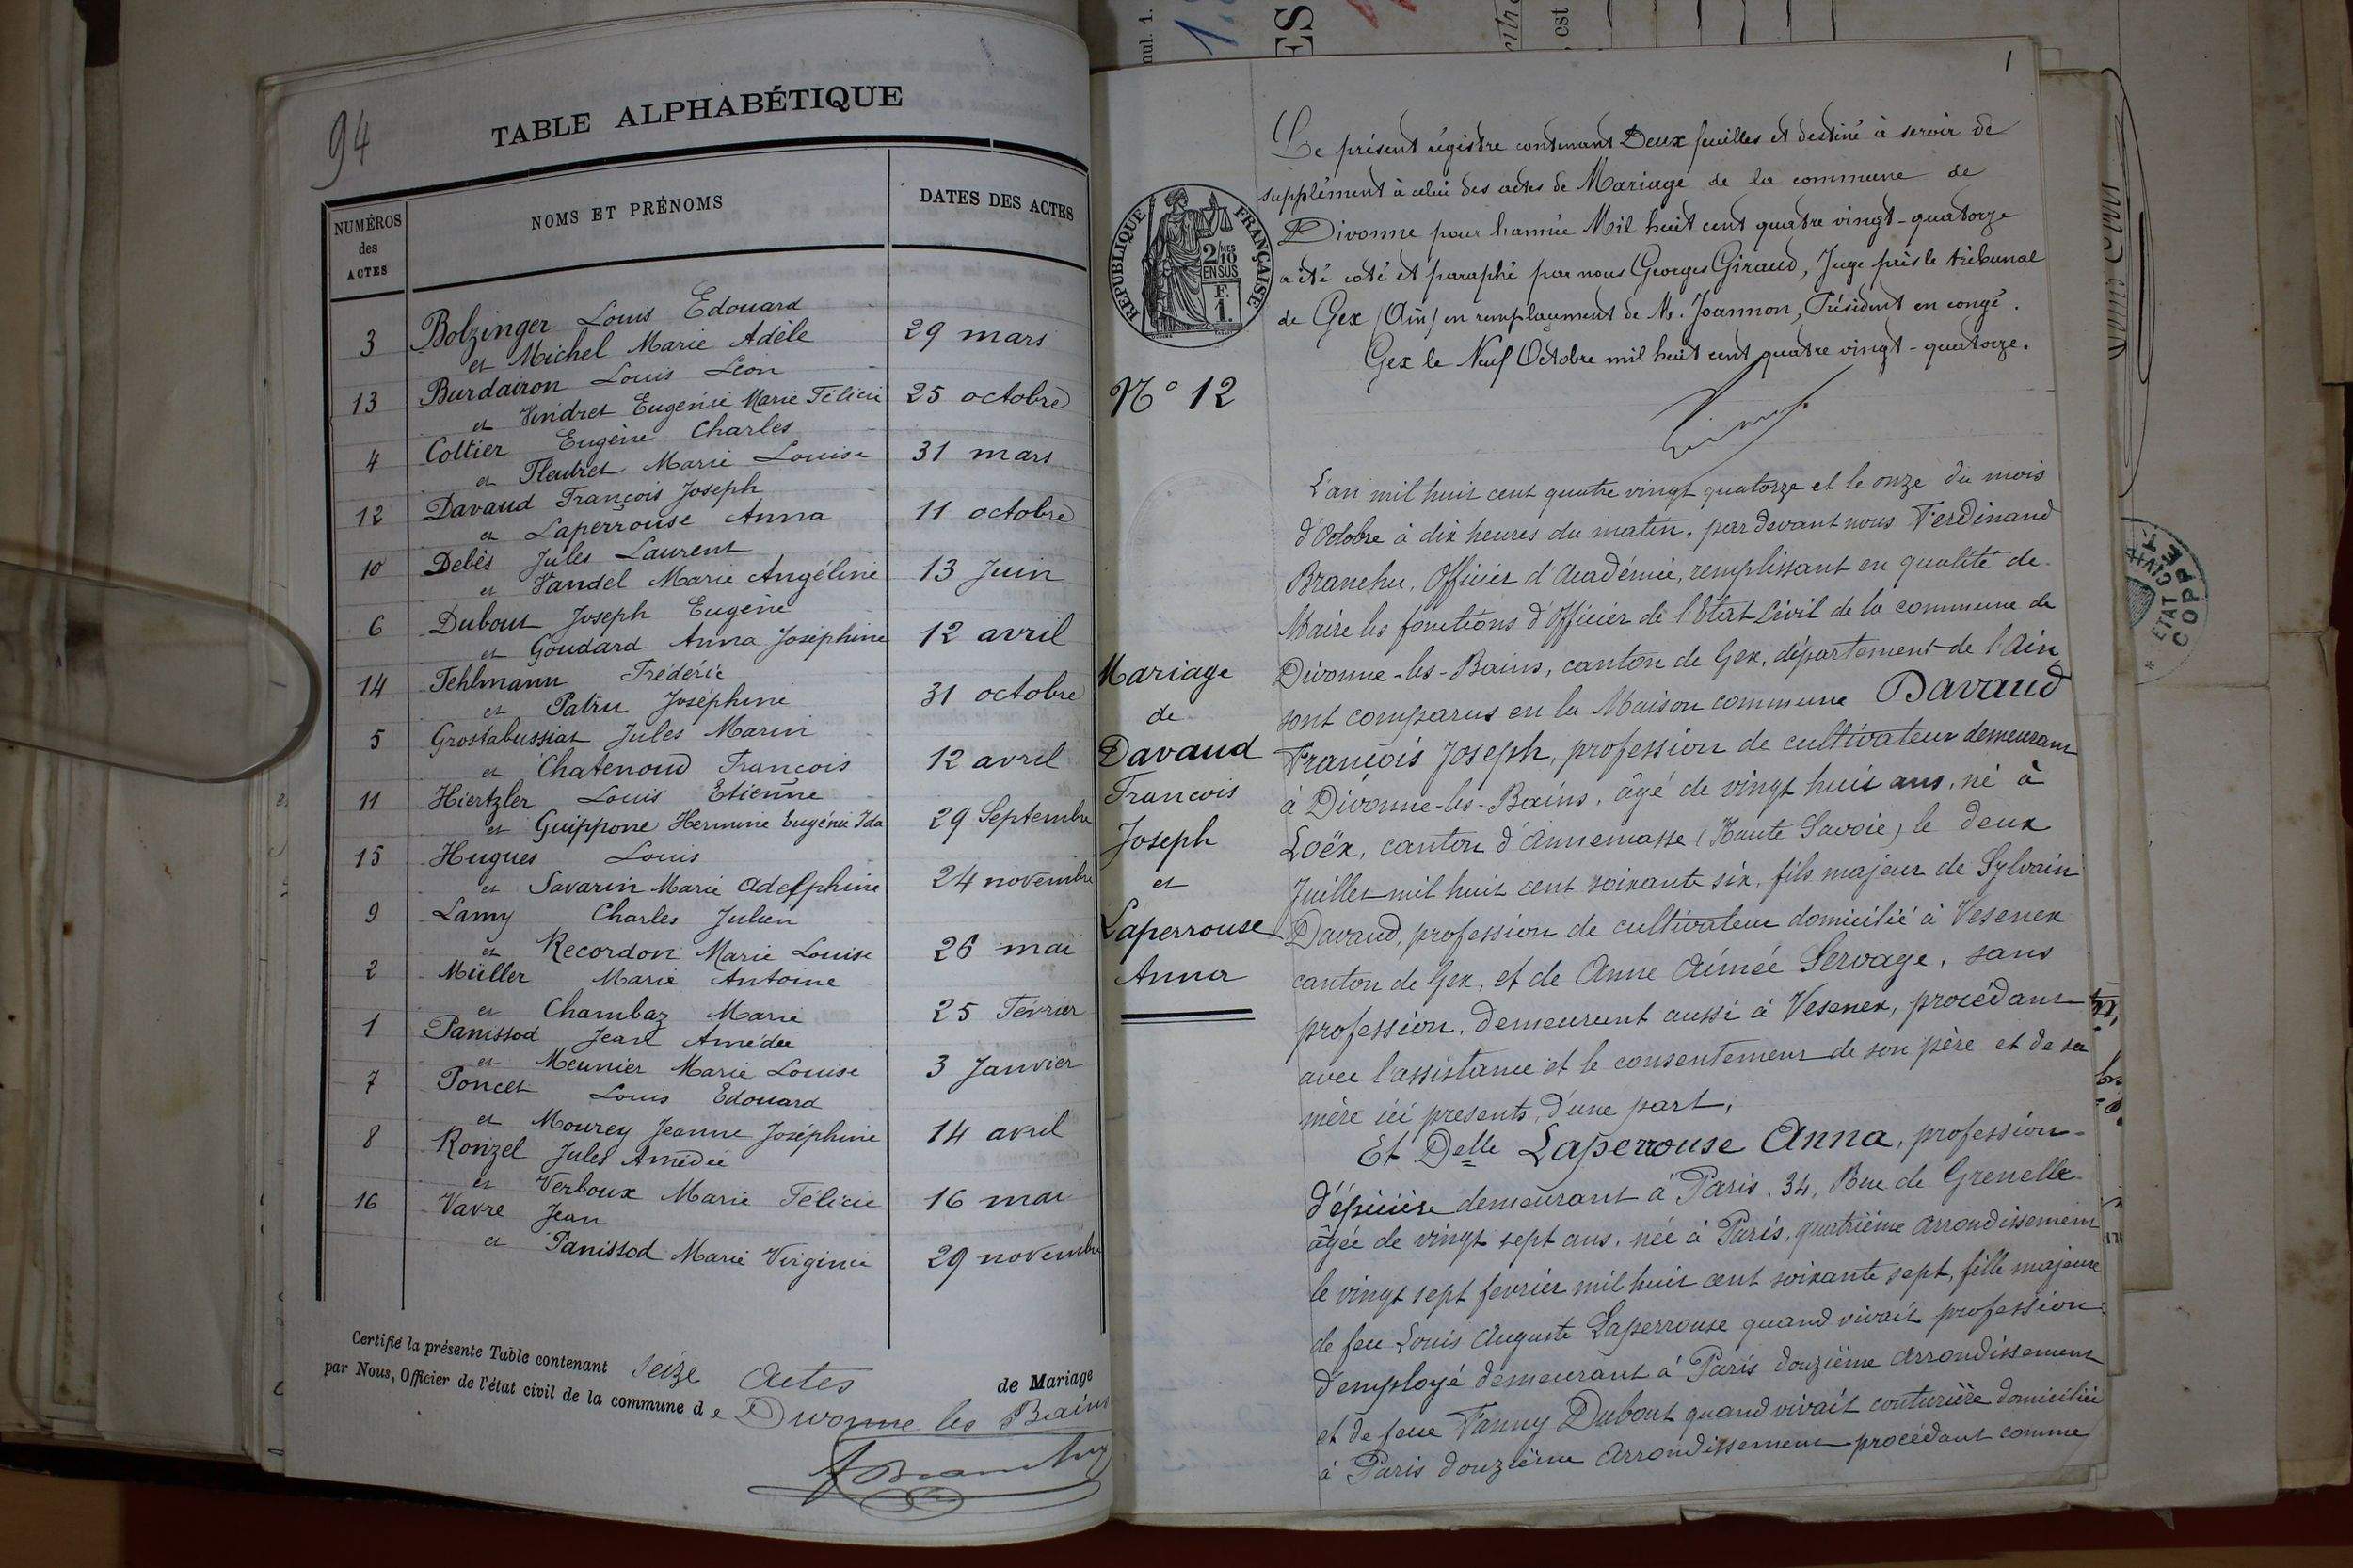 94
TABLE ALPHABÉTIQUE
NUMÉROS des ACTES
NOMS ET PRÉNOMS
DATES DES ACTES
3 Bolzinger Louis Edouard
et Michel Marie Adèle 29 mars
13 Burdairon Louis Léon
et Vindret Eugénie Marie Félicie 25 octobre
4 Cottier Eugène Charles
et Fleutret Marie Louise 31 mars
12 Davaud François Joseph
et Laperrouse Anna 11 octobre
10 Debès Jules Laurent
et Vandel Marie Angéline 13 Juin
6 Dubout Joseph Eugène
et Goudard Anna Joséphine 12 avril
14 Fehlmann Frédéric
et Patru Joséphine 31 octobre
5 Grostabussiat Jules Marin
et Chatenoud François 12 avril
11 Hiertzler Louis Etienne
et Guippone Hermine Eugénie Ida 29 Septembre
15 Hugues Louis
et Savarin Marie Adelphine 24 novembre
9 Lamy Charles Julien
et Recordon Marie Louise 26 mai
2 Müller Marie Antoine
et Chambaz Marie 25 Février
1 Panissod Jean Amédée
et Meunier Marie Louise 3 Janvier
7 Poncet Louis Edouard
et Mourey Jeanne Joséphine 14 avril
8 Ronzel Jules Amédée
et Verboux Marie Félicie 16 mai
16 Vavre Jean
et Panissod Marie Virginie 29 novembre
Certifié la présente Table contenant seize Actes de Mariage
par Nous, Officier de l'état civil de la commune de Divonne les Bains
1
Le présent régistre contenant Deux feuilles et destiné à servir de
supplément à celui des actes de Mariage de la commune de
Divonne pour l'année Mil huit cent quatre vingt-quatorze
a été coté et paraphé par nous Georges Giraud, Juge près le tribunal
de Gex (Ain) en remplaçement de M. Joannon, Président en congé.
Gex le Neuf Octobre mil huit cent quatre vingt-quatorze.
RÉPUBLIQUE FRANÇAISE
2/10 MES
EN SUS
F.
1.
N° 12
Mariage
de
Davaud
François
Joseph
et
Laperrouse
Anna
L'an mil huit cent quatre vingt quatorze et le onze du mois
d'Octobre à dix heures du matin, par devant nous Ferdinand
Branchu, Officier d'Académie, remplissant en qualité de
Maire les fonctions d'Officier de l'Etat Civil de la commune de
Divonne-les-Bains, canton de Gex, département de l'Ain
sont comparus en la Maison commune Davaud
François Joseph, profession de cultivateur demeurant
à Divonne-les-Bains, âgé de vingt huit ans, né à
Loëx, canton d'Annemasse (Haute Savoie) le deux
Juillet mil huit cent soixante six, fils majeur de Sylvain
Davaud, profession de cultivateur domicilié à Vesenex
canton de Gex, et de Anne Aimée Servage, sans
profession, demeurant aussi à Vesenex, procédant
avec l'assistance et le consentement de son père et de sa
mère ici presents, d'une part;
Et Delle Laperrouse Anna, profession
d'épicière demeurant à Paris, 34, Rue de Grenelle
âgée de vingt sept ans, née à Paris, quatrième arrondissement
le vingt sept fevrier mil huit cent soixante sept, fille majeure
de feu Louis Auguste Laperrouse quand vivait profession
d'employé demeurant à Paris douzième arrondissement
et de feue Fanny Dubout quand vivait couturière domiciliée
à Paris douzième arrondissement procédant comme
ETAT CIVIL
COPPET